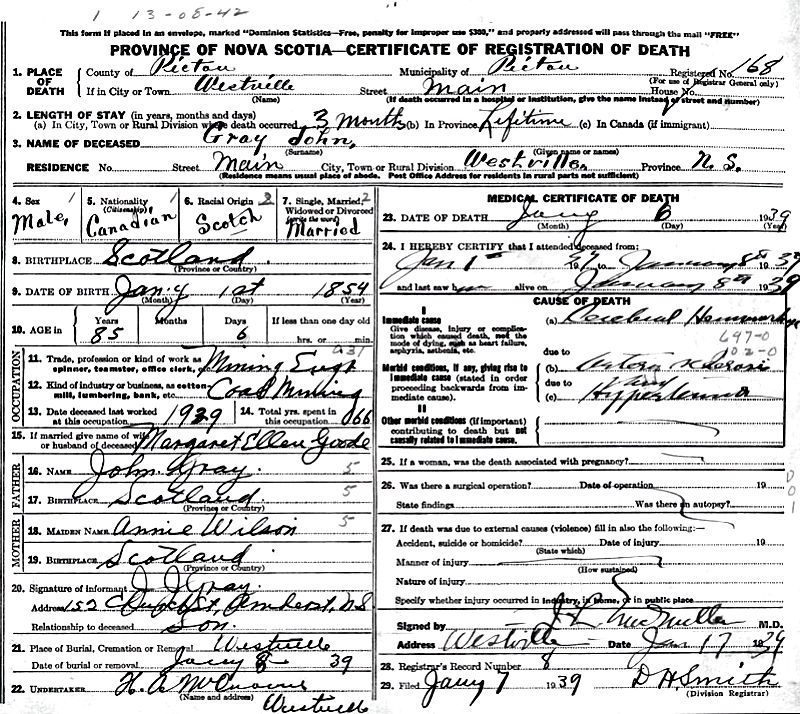 1 13-08-42
This form if placed in an envelope, marked "Dominion Statistics—Free, penalty for improper use $300," and properly addressed will pass through the mail "FREE"
PROVINCE OF NOVA SCOTIA—CERTIFICATE OF REGISTRATION OF DEATH
1. PLACE OF DEATH County of Pictou Municipality of Pictou Registered No. 168
(For use of Registrar General only)
If in City or Town Westville Street Main House No.
(Name) (If death occurred in a hospital or institution, give the name instead of street and number)
2. LENGTH OF STAY (in years, months and days)
(a) In City, Town or Rural Division where death occurred 3 Months (b) In Province Lifetime (c) In Canada (if immigrant)
3. NAME OF DECEASED Gray John,
(Surname) (Given name or names)
RESIDENCE No. Street Main City, Town or Rural Division Westville, Province N. S.
(Residence means usual place of abode. Post Office Address for residents in rural parts not sufficient)
4. Sex 1 Male,
5. Nationality (Citizenship) 1 Canadian
6. Racial Origin 3 Scotch
7. Single, Married, Widowed or Divorced (write the word) 2 Married
8. BIRTHPLACE Scotland
(Province or Country)
9. DATE OF BIRTH Jany 1st 1854
(Month) (Day) (Year)
10. AGE in Years 85 Months Days 6 If less than one day old hrs. or min.
OCCUPATION
11. Trade, profession or kind of work as spinner, teamster, office clerk, etc. Mining Engr
12. Kind of industry or business, as cotton-mill, lumbering, bank, etc. Coal Mining
13. Date deceased last worked at this occupation 1929 14. Total yrs. spent in this occupation 66
15. If married give name of wife or husband of deceased Margaret Ellen Goode
FATHER
16. NAME John Gray 5
17. BIRTHPLACE Scotland 5
(Province or Country)
MOTHER
18. MAIDEN NAME Annie Wilson 5
19. BIRTHPLACE Scotland
(Province or Country)
20. Signature of informant J. J. Gray.
Address 152 Church St, Amherst, N.S.
Relationship to deceased Son.
21. Place of Burial, Cremation or Removal Westville
Date of burial or removal Jany 8 39
22. UNDERTAKER H. A.
(Name and address) Westville
MEDICAL CERTIFICATE OF DEATH
23. DATE OF DEATH Jany 6 1939
(Month) (Day) (Year)
24. I HEREBY CERTIFY that I attended deceased from:
Jan 1st 19 to January 8th 1939
and last saw him alive on January 8th 1939
CAUSE OF DEATH
I
Immediate cause (a) Cerebral Hemorrhage
Give disease, injury or complication which caused death, not the mode of dying, such as heart failure, asphyxia, asthenia, etc.
due to
Morbid conditions, if any, giving rise to immediate cause (stated in order proceeding backwards from immediate cause). (b) Arterio Sclerosis
due to
(c) Hypertension
II
Other morbid conditions (if important) contributing to death but not causally related to immediate cause.
25. If a woman, was the death associated with pregnancy?
26. Was there a surgical operation? Date of operation 19
State findings Was there an autopsy?
27. If death was due to external causes (violence) fill in also the following:—
Accident, suicide or homicide? Date of injury 19
(State which)
Manner of injury
(How sustained)
Nature of injury
Specify whether injury occurred in industry, in home, or in public place
Signed by M.D.
Address Westville Date Jan 17 1939
28. Registrar's Record Number 8
29. Filed Jany 7 1939 D H Smith
(Division Registrar)